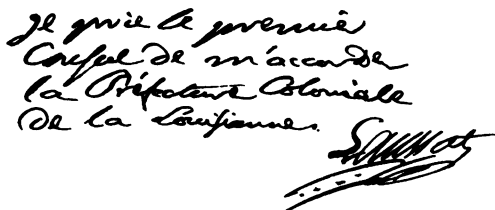 Je prie le premier
Consul de m'accorder
la Préfecture Coloniale
de la Louisianne.
Laussat